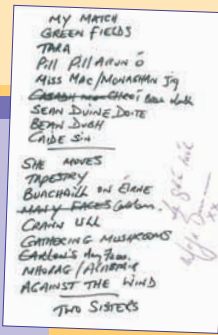 MY MATCH
GREEN FIELDS
TARA
Pill Pill ARUN Ó
MISS MAC/MONAGHAN Jig
SEAN DUINE DOITE
BEAN DUBH
CAIDE SIN
SHE MOVES
TAPESTRY
BUACHAILL ON ÉIRNE
MANY FACES
CRANN ULL
GATHERING MUSHROOMS
MHORAG/
AGAINST THE WIND
TWO SISTERS